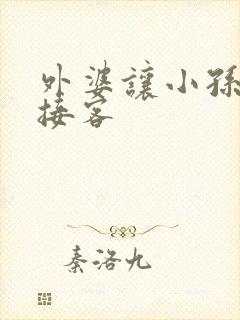 外婆讓小孫
接客
秦洛九